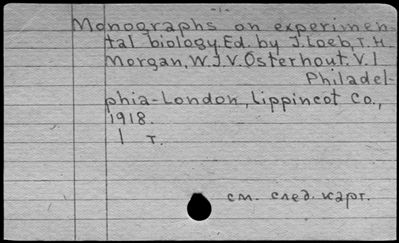 -1-
Monographs on experimen-
tal biology. Ed. by J. Loeb, T. H.
Morgan, W. J. V. Osterhout. V. I
Philadel-
phia-London, Lippincot Co.,
1918.
1 т.
см. след. карт.